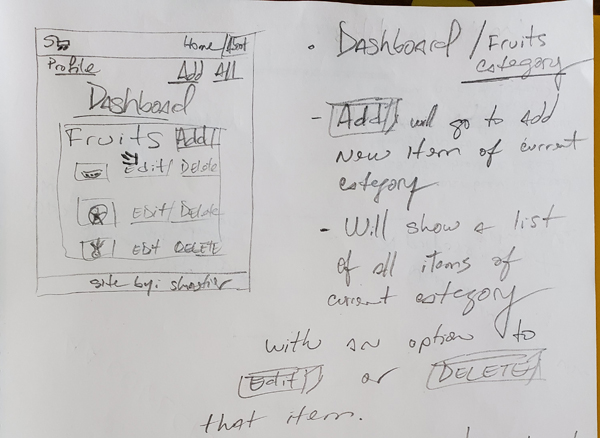 Home/
Profile Add All
Dashboard
Fruits Add
Edit/ Delete
Edit/ Delete
Edit DELETE
site by:
• Dashboard / Fruits
category
- Add will go to Add
New item of current
category
- Will show a list
of all items of
current category
with an option to
Edit or DELETE
that item.